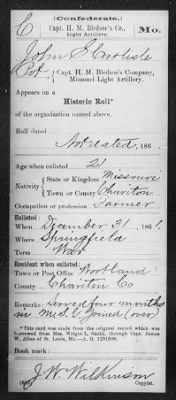 (Confederate.)
C Capt. H. M. Bledsoe's Co., Mo.
Light Artillery.
John S Carlisle
Pvt, Capt. H. M. Bledsoe's Company,
Missouri Light Artillery.
Appears on a
Historic Roll*
of the organization named above.
Roll dated
Not dated, 186
Age when enlisted 21
Nativity State or Kingdom Missouri
Town or County Chariton
Occupation or profession Farmer
Enlisted:
When December 31, 1861.
Where Springfield
Term War
Resident when enlisted:
Town or Post Office
County Chariton Co
Remarks: Served four months
in M.S.G. Joined (over)
*This card was made from the original record which was
borrowed from Mrs. Wright L. Smith, through Capt. James
W. Allen of St. Louis, Mo.—A. G.
Book mark:
J W Wilkinson
Copyist.